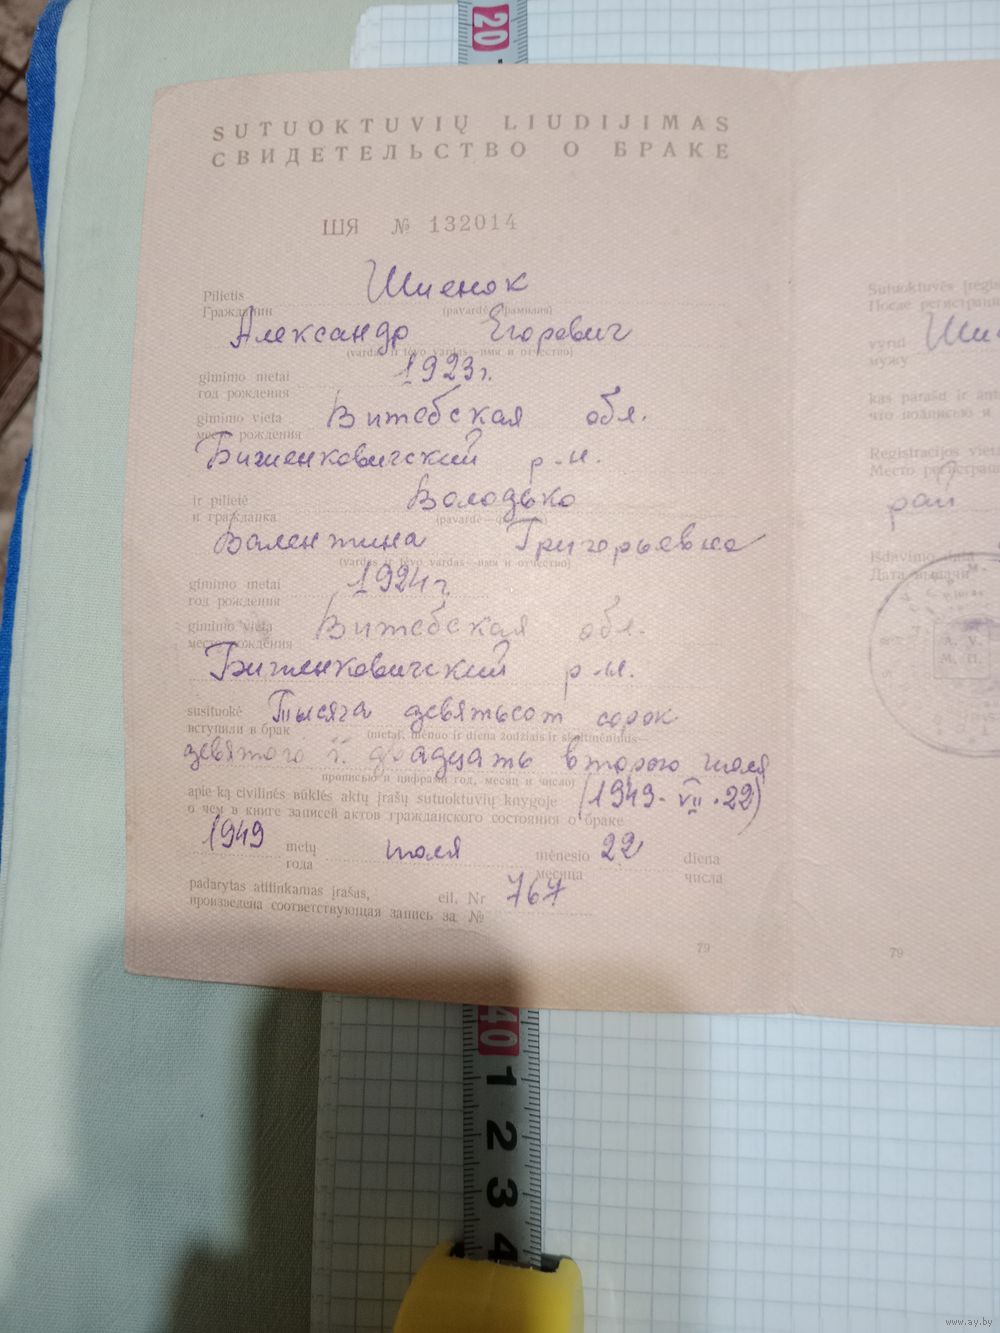 20
SUTUOKTUVIŲ LIUDIJIMAS
СВИДЕТЕЛЬСТВО О БРАКЕ
ШЯ № 132014
Pilietis Шиенок
Гражданин (pavardė—фамилия)
Александр Егорович
(vardas ir tėvo vardas—имя и отчество)
gimimo metai 1923 г.
год рождения
gimimo vieta Витебская обл.
место рождения
Бишенковичский р-н.
ir pilietė Володько
и гражданка (pavardė—фамилия)
Валентина Григорьевна
(vardas ir tėvo vardas—имя и отчество)
gimimo metai 1924 г.
год рождения
gimimo vieta Витебская обл.
место рождения
Бишенковичский р-н.
susituokė Тысяча девятьсот сорок
вступили в брак (metai, mėnuo ir diena žodžiais ir skaitmenimis—
девятого г. двадцать второго июля
прописью и цифрами год, месяц и число)
apie ką civilinės būklės aktų įrašų sutuoktuvių knygoje (1949. VII. 22)
о чем в книге записей актов гражданского состояния о браке
1949 metų июля mėnesio 22 diena
года месяца числа
padarytas atitinkamas įrašas, eil. Nr 767
произведена соответствующая запись за №
79
Sutuoktuvės įregis
После регистраци
vyrui Шие
мужу
kas parašu ir ant
что подписью и
Registracijos vieta
Место регистрац
рай
Išdavimo data
Дата выдачи
A. V.
М. П.
79
40
1
2
3
4
www.ay.by